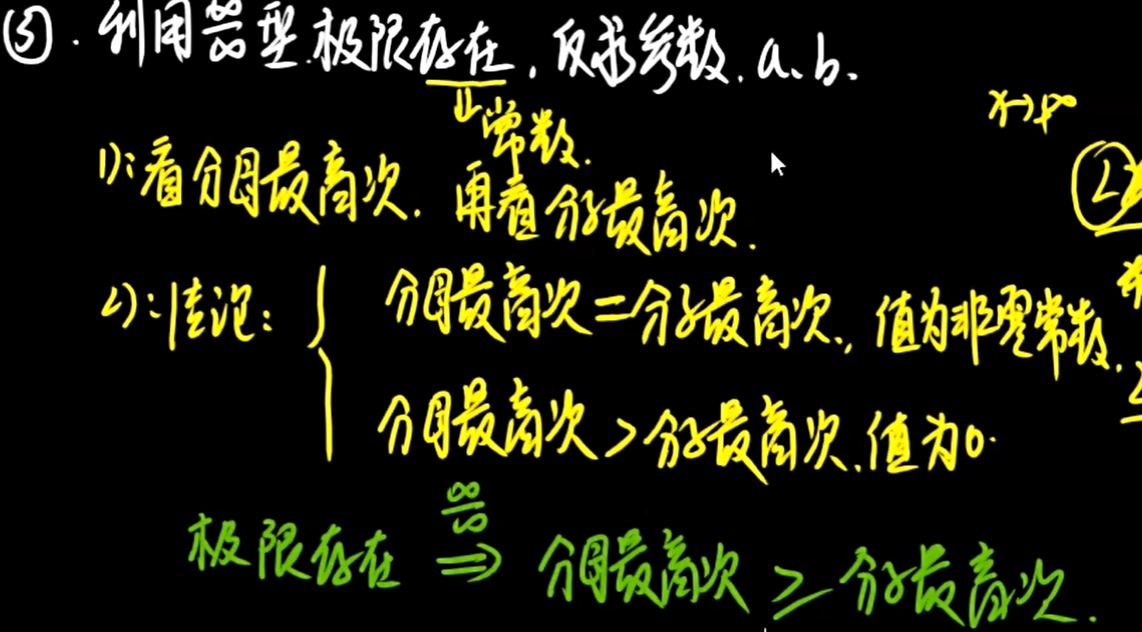 ③. 利用∞/∞型.极限存在,反求参数.a、b.
⇓常数.
x→∞
1):看分母最高次.再看分子最高次.
②
2):结论:
分母最高次=分子最高次.,值为非零常数.
分母最高次>分子最高次.值为0.
极限存在 ∞/∞ ⇒ 分母最高次 ≥ 分子最高次.